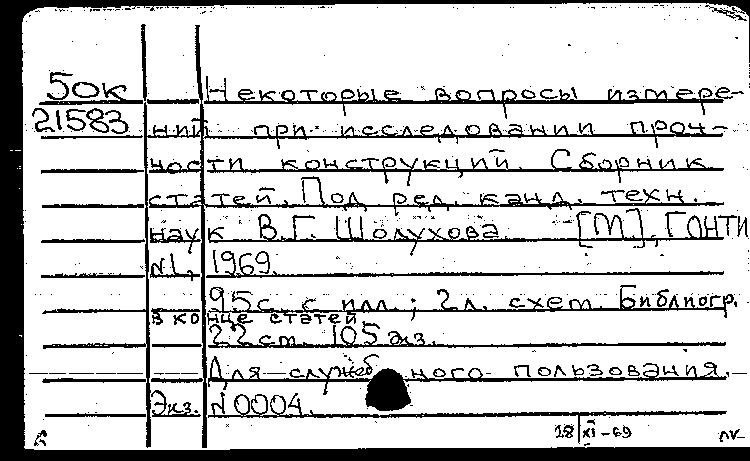 50к Некоторые вопросы измере-
21583 ний при исследовании проч-
ности конструкций. Сборник
статей. Под ред. канд. техн.
наук В.Г. Шолухова. [М], ГОНТИ
N1, 1969.
95с. с илл.; 2л. схем. Библиогр.
в конце статей.
22см. 105 экз.
Для служебного пользования.
Экз. N0004.
18|XI-69